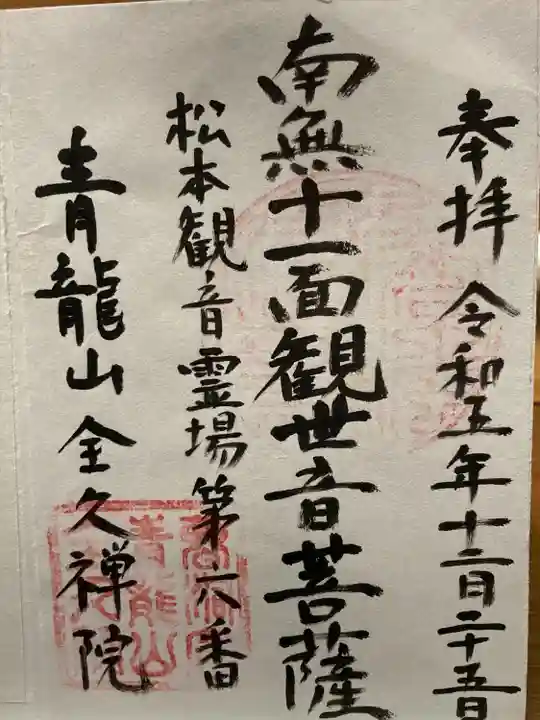 奉拝 令和五年十二月二十五日
南無十一面観世音菩薩
松本観音霊場第六番
青龍山全久禅院